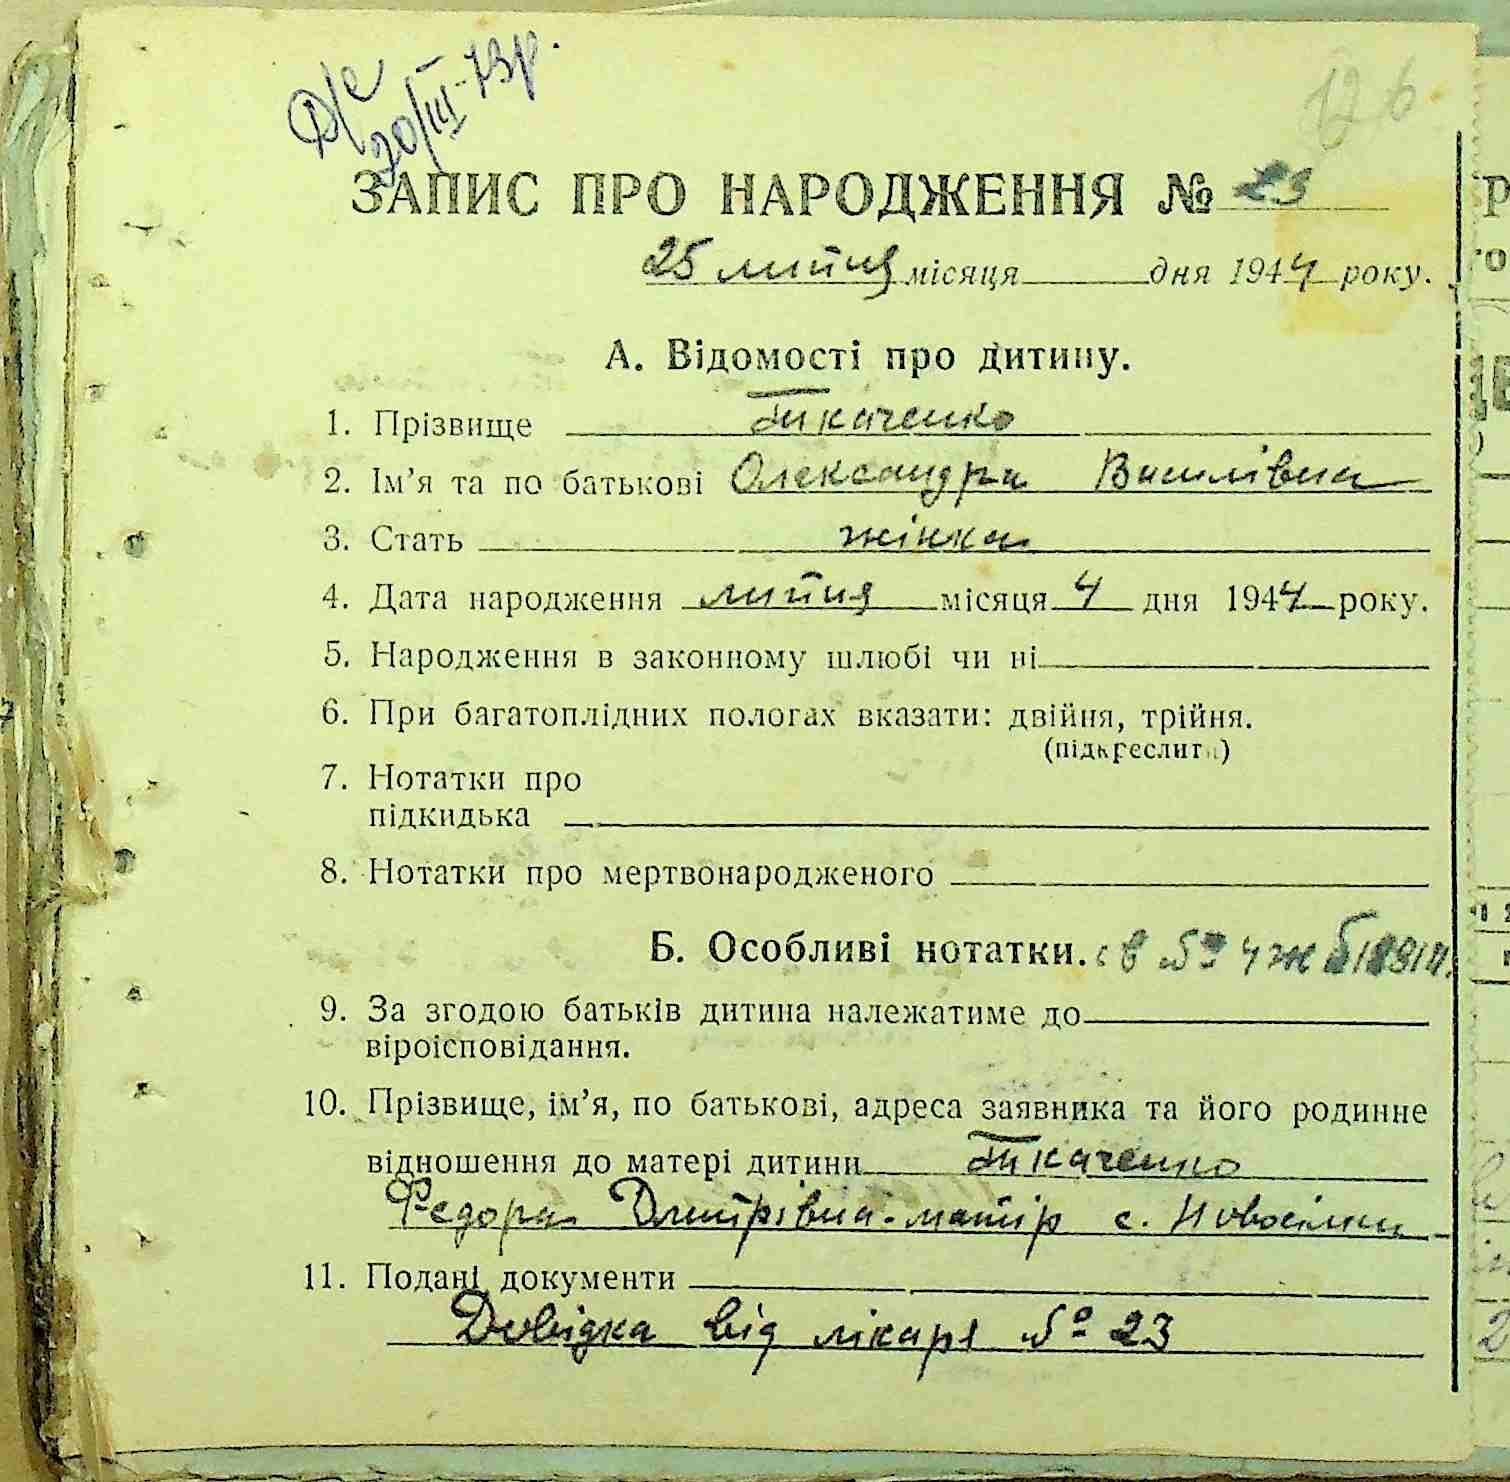 Д/с
20/III-73р.
126
ЗАПИС ПРО НАРОДЖЕННЯ № 29
25 липня місяця дня 1944 року.
А. Відомості про дитину.
1. Прізвище Ткаченко
2. Ім'я та по батькові Олександра Василівна
3. Стать жінка
4. Дата народження липня місяця 4 дня 1944 року.
5. Народження в законному шлюбі чи ні
6. При багатоплідних пологах вказати: двійня, трійня.
(підкреслити)
7. Нотатки про
підкидька
8. Нотатки про мертвонародженого
Б. Особливі нотатки. св № 4 ЖБ
9. За згодою батьків дитина належатиме до
віроісповідання.
10. Прізвище, ім'я, по батькові, адреса заявника та його родинне
відношення до матері дитини Ткаченко
Федора Дмитрівна - матір с. Новосілки
11. Подані документи
Довідка від лікаря № 23